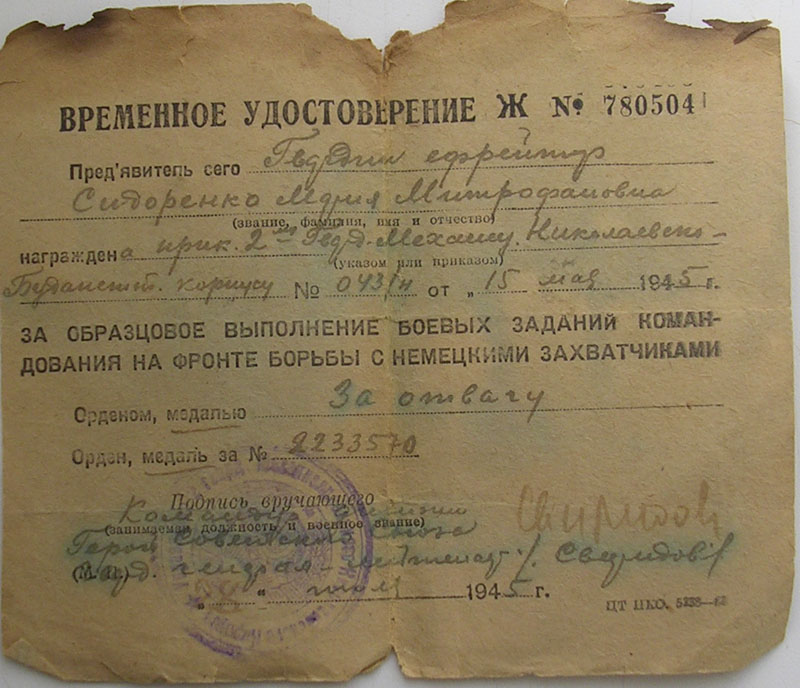 ВРЕМЕННОЕ УДОСТОВЕРЕНИЕ Ж № 780504
Пред'явитель сего Гвардии ефрейтор
Сидоренко Мария Митрофановна
(звание, фамилия, имя и отчество)
награждена прик. 2 Гвард. Механиз. Николаевско-
(указом или приказом)
Будапешт. корпусу № 043/н от „15 мая 1945 г.
ЗА ОБРАЗЦОВОЕ ВЫПОЛНЕНИЕ БОЕВЫХ ЗАДАНИЙ КОМАН-
ДОВАНИЯ НА ФРОНТЕ БОРЬБЫ С НЕМЕЦКИМИ ЗАХВАТЧИКАМИ
Орденом, медалью За отвагу
Орден, медаль за № 2233570
Подпись вручающего
Командир Свиридов
(занимаемая должность и военное звание)
Герой Советского Союза
(М. П.) гвард. генерал-лейтенант /Свиридов/
„ “ 1945 г.
ЦТ НКО. 5238—